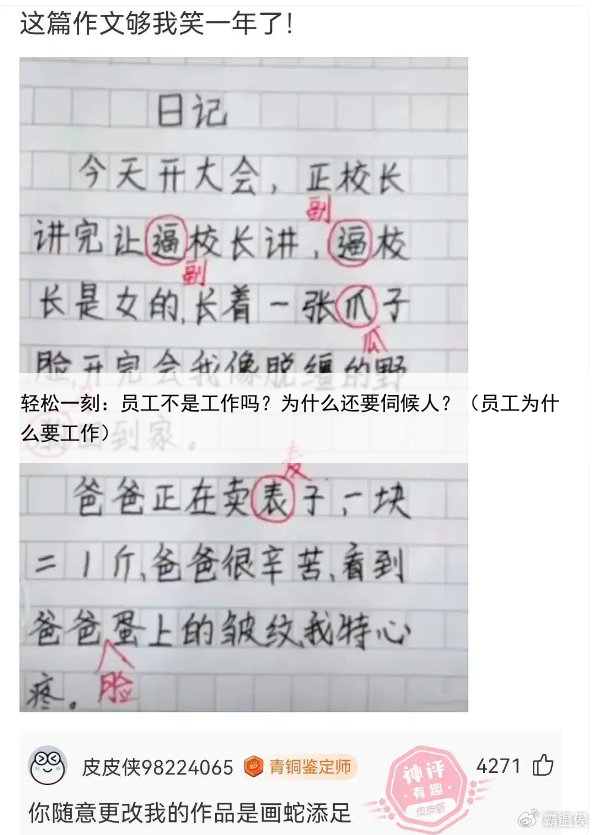 这篇作文够我笑一年了！
日记
今天开大会，正校长
副
讲完让逼校长讲，逼校
副
长是女的，长着一张爪子
瓜
脸，开完会我像脱缰的野
轻松一刻：员工不是工作吗？为什么还要伺候人？（员工为什
么要工作）
出到家。
麦
爸爸正在卖表子，一块
二1斤，爸爸很辛苦，看到
爸爸蛋上的皱纹我特心
脸
疼。
皮皮侠98224065 青铜鉴定师 4271
神评
有趣
皮皮虾
你随意更改我的作品是画蛇添足
霸温侯